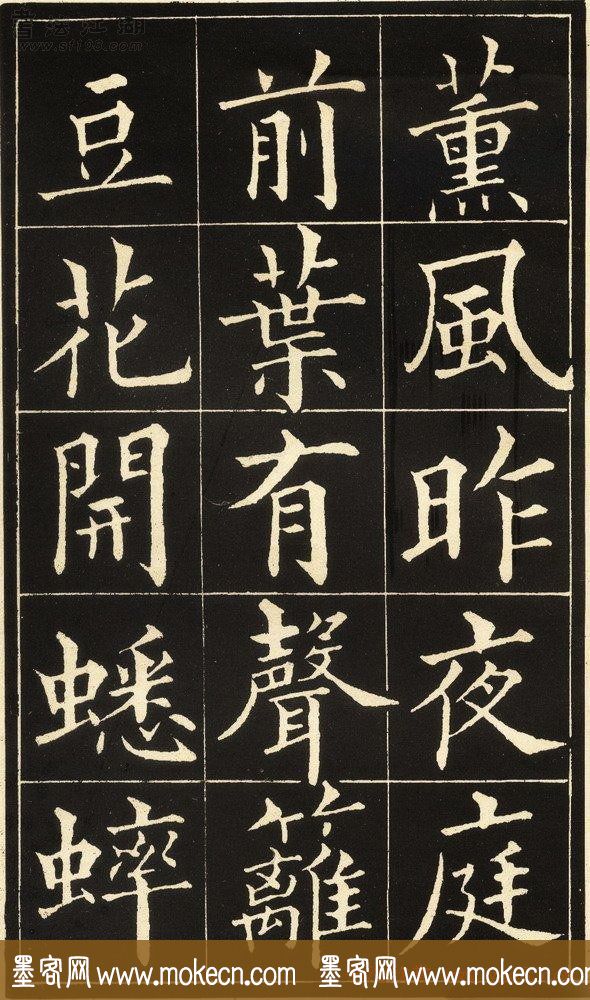 薰風昨夜庭
前葉有聲籬
豆花開蟋蟀
書法江湖
www.sf108.com
墨客网 www.mokecn.com 墨客网 www.mokecn.com